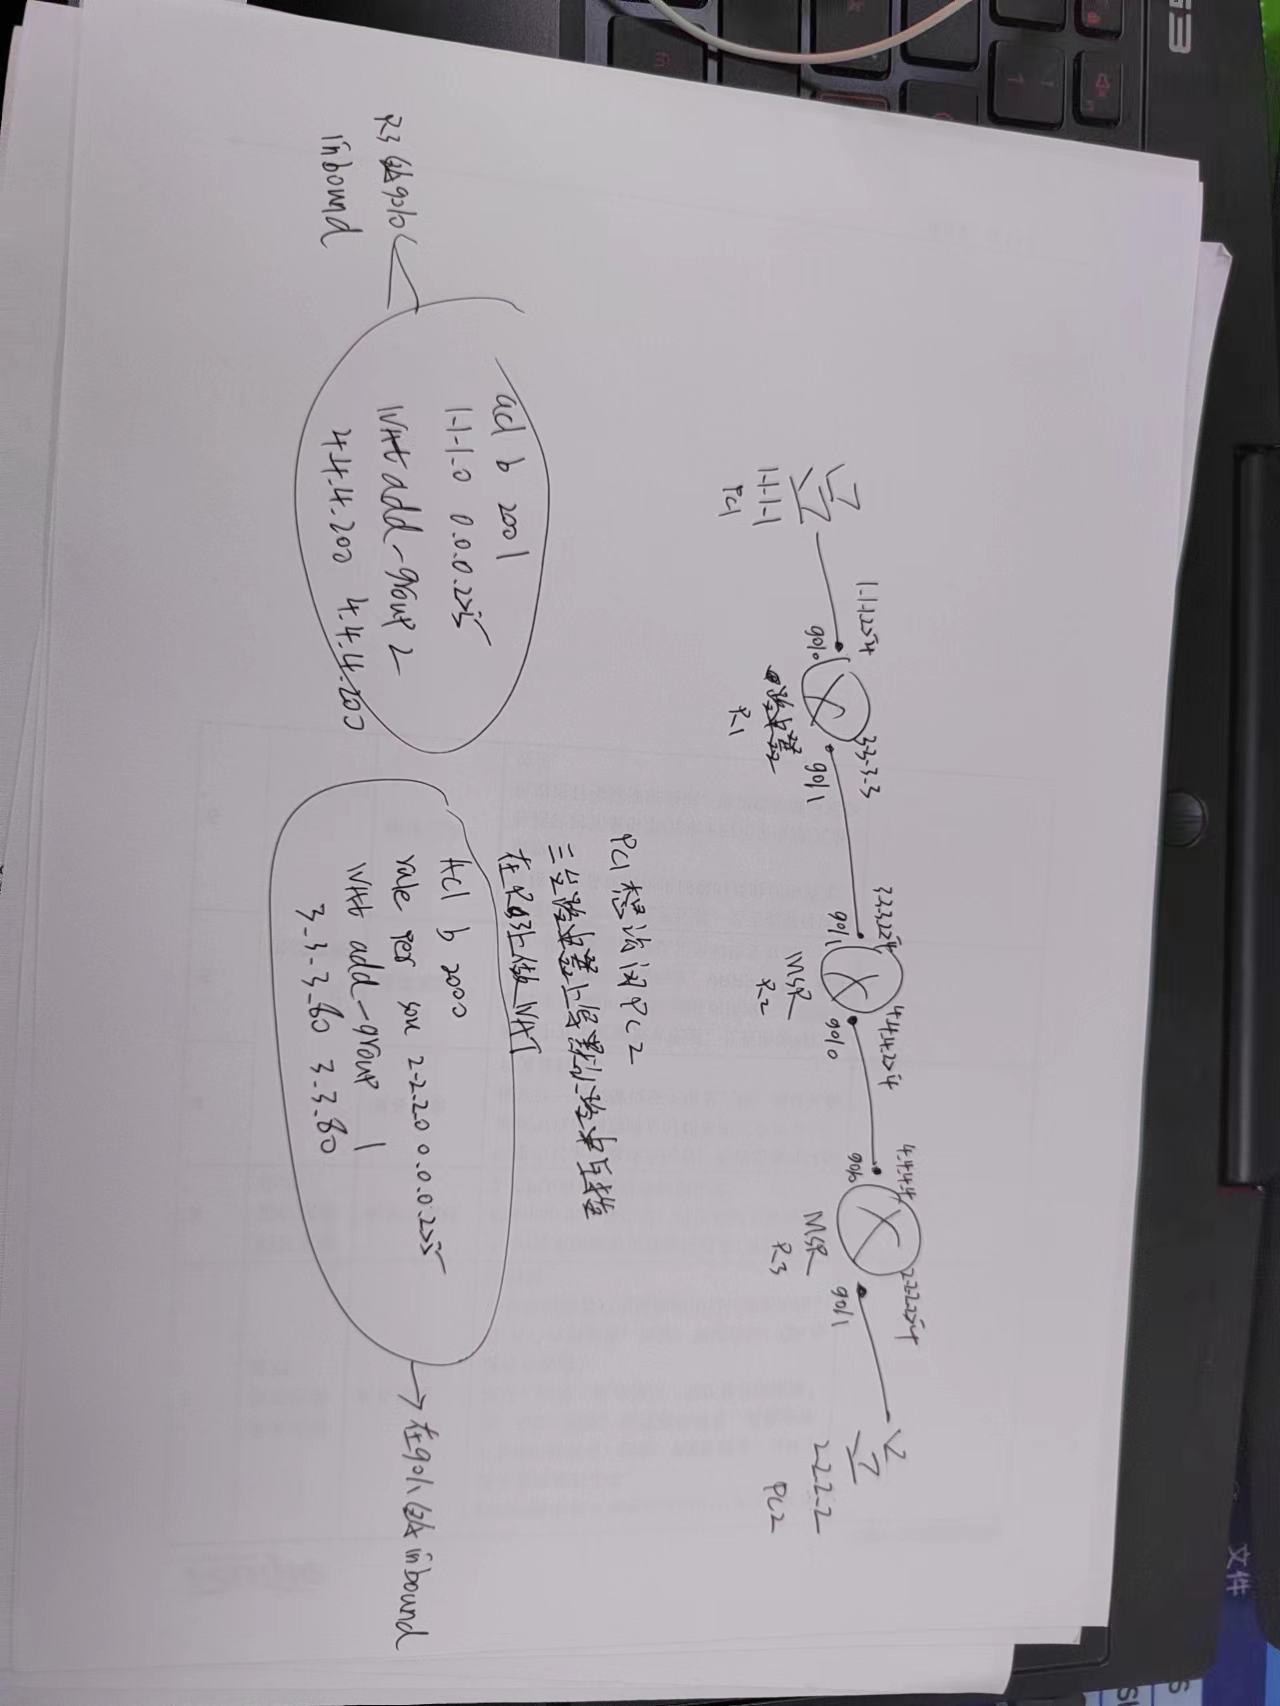 1.1.1.254
3.3.3.3
3.3.3.254
4.4.4.254
4.4.4.4
2.2.2.254
g0/0
g0/1
g0/1
g0/0
g0/0
g0/1
1.1.1.1
PC1
路由器
R1
MSR
R2
MSR
R3
2.2.2.2
PC2
PC1想访问PC2
三台路由器上写默认路由互指
在R3上做NAT
acl b 2001
1.1.1.0 0.0.0.255
NAt add-group 2
4.4.4.200 4.4.4.200
R3 g0/0
inbound
Acl b 2000
rule per sou 2.2.2.0 0.0.0.255
NAt add-group 1
3.3.3.80 3.3.80
在g0/1 inbound
文件